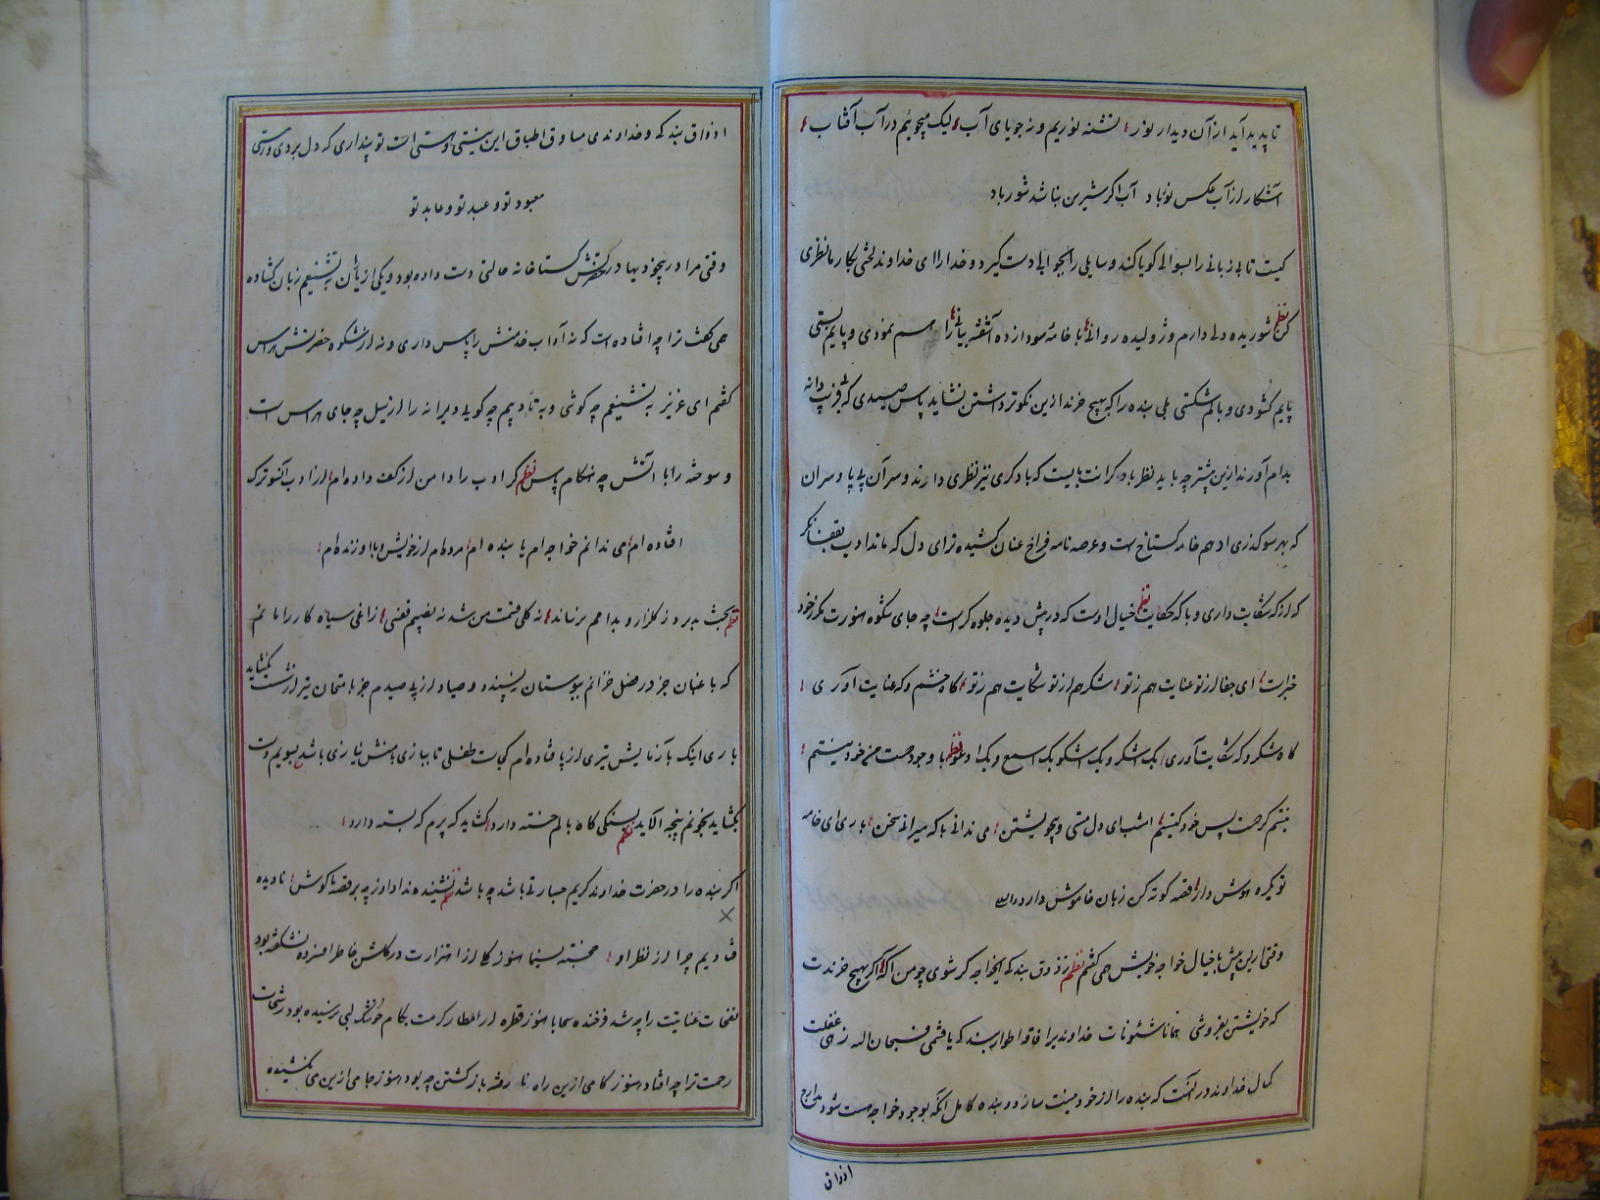 تا پدید آید از آن دیدار نور تشنه نوریم و نه جویای آب لیک میجوئیم در آب آفتاب
آشکار از آب عکس نور باد آب اگر شیرین نباشد شور باد
کیست تا بی زبانی را بسوالی گویا کند و سایلی را بجوابی دست گیرد و خدا را ای خداوند لختی بکار ما نظری
کن نظم شوریده دلی دارم و ژولیده روانی با خامه سودازده آشفته بیانی را هم نمودی و پایم بستی
پایم گشودی و بالم شکستی بلی بنده را که بهیچ خرند ازین نکوتر داشتن نشاید پس صیدی که بفریب دانه
بدام آورند ازین بیشتر چه باید نظر باد گرانت بایست که با دگری نیز نظری دارند و سر آن بی پا و سران
که بهر سو گذری او هم خامه گستاخ است و عرصه نامه فراخ عنان کشیده تر ای دل که ماند ادب بقفا نگر
که از که شکایت داری و با که حکایت نظم خیال اوست که در پیش دیده جلوه گر است چه جای شکوه هنوزت مگر ز خود
خبر است ای جفا از تو عنایت هم ز تو شکر هم از تو شکایت هم ز تو گاه خشم و گه عنایت آوری
گاه شکر و گه شکایت آوری یک شکر و یک شکو یک اسمع و یک نظم با وجودت من خود نیستم
نیستم گر جست پس خود کیستم امشب ای دل مستی و بیخویشتن می ندانی با که میرانی سخن باری ای خامه
تو یکره هوش دار قصه کوته کن زبان خاموش دار
وقتی ازین پیش با خیال خواجه خویش همی گفتم نظم ز ذوق بندگی ایخواجه گر شوی چو من آگه اگر بهیچ خرندت
که خویشتن بفروشی همانا شئونات خداوندیرا فاقد اطوار بندگی یافتمی فسبحان الله زهی غفلت
کمال خداوند در آنست که بنده را از خود نیست سازد و بنده کامل آنکه بوجود خواجه هست شود
اذواق
اذواق بندگی و خداوندی مساوق اطباق این نیستی و هستی است تو پنداری که دل بردی و رستی
معبود تو و عبد تو و عابد تو
وقتی مرا در بیخودیها در حضرتش گستاخانه حالتی دست داده بود و یکی از یاران بتشنیعم زبان گشاده
همی گفت ترا چه افتاده است که نه آداب خدمتش را پاس داری و نه از شکوه حضرتش هراس
گفتم ای عزیز به تشنیعم چه کوشی و به تأدیبم چه گویی ویرانه را از سیل چه جای هراس است
و سوخته را با آتش چه هنگام پاس نظم گر ادب را دامن از کف داده ام از ادب آنسوترک
افتاده ام می ندانم خواجه ام یا بنده ام مرده ام از خویش و با او زنده ام
نظم بختت بدر و ز گلزار و بدامم برساند نه گلی قسمت من شد نه نصیبم قفسی زاغی سیاه کار را مانم
که باغبان جز در فصل خزانم ببوستان نپسندد و صیاد از پی صیدم جز بامتحان تیر از شست نگشاید
باری اینک بآزمایش تیری از پا فتاده ام کجاست طفلی تا ببازی باشش نیازی باشد بسویم دست
بگشاید بخونم پنجه آلاید نظم بسنگی گاه بالم خسته دارد گشاید گه پرم گه بسته دارد
اگر بنده را در حضرت خداوند کریم جسارتی باشد چه باشد نظم نشنیده ندا داد ز چه بر قصه ما گوش نادیده
فتادیم چرا از نظر او خجسته نسیما هنوز گلی از اهتزازت در گلشن خاطر افسرده نشکفته بود
نفحات عنایت را چه شد فرخنده سحابا هنوز قطره از امطار کرمت بکام خشک لبی نرسیده بود رشحات
رحمت ترا چه افتاد هنوز گامی ازین راه نارفته بازگشتن چه بود هنوز جامی ازین می نکشیده